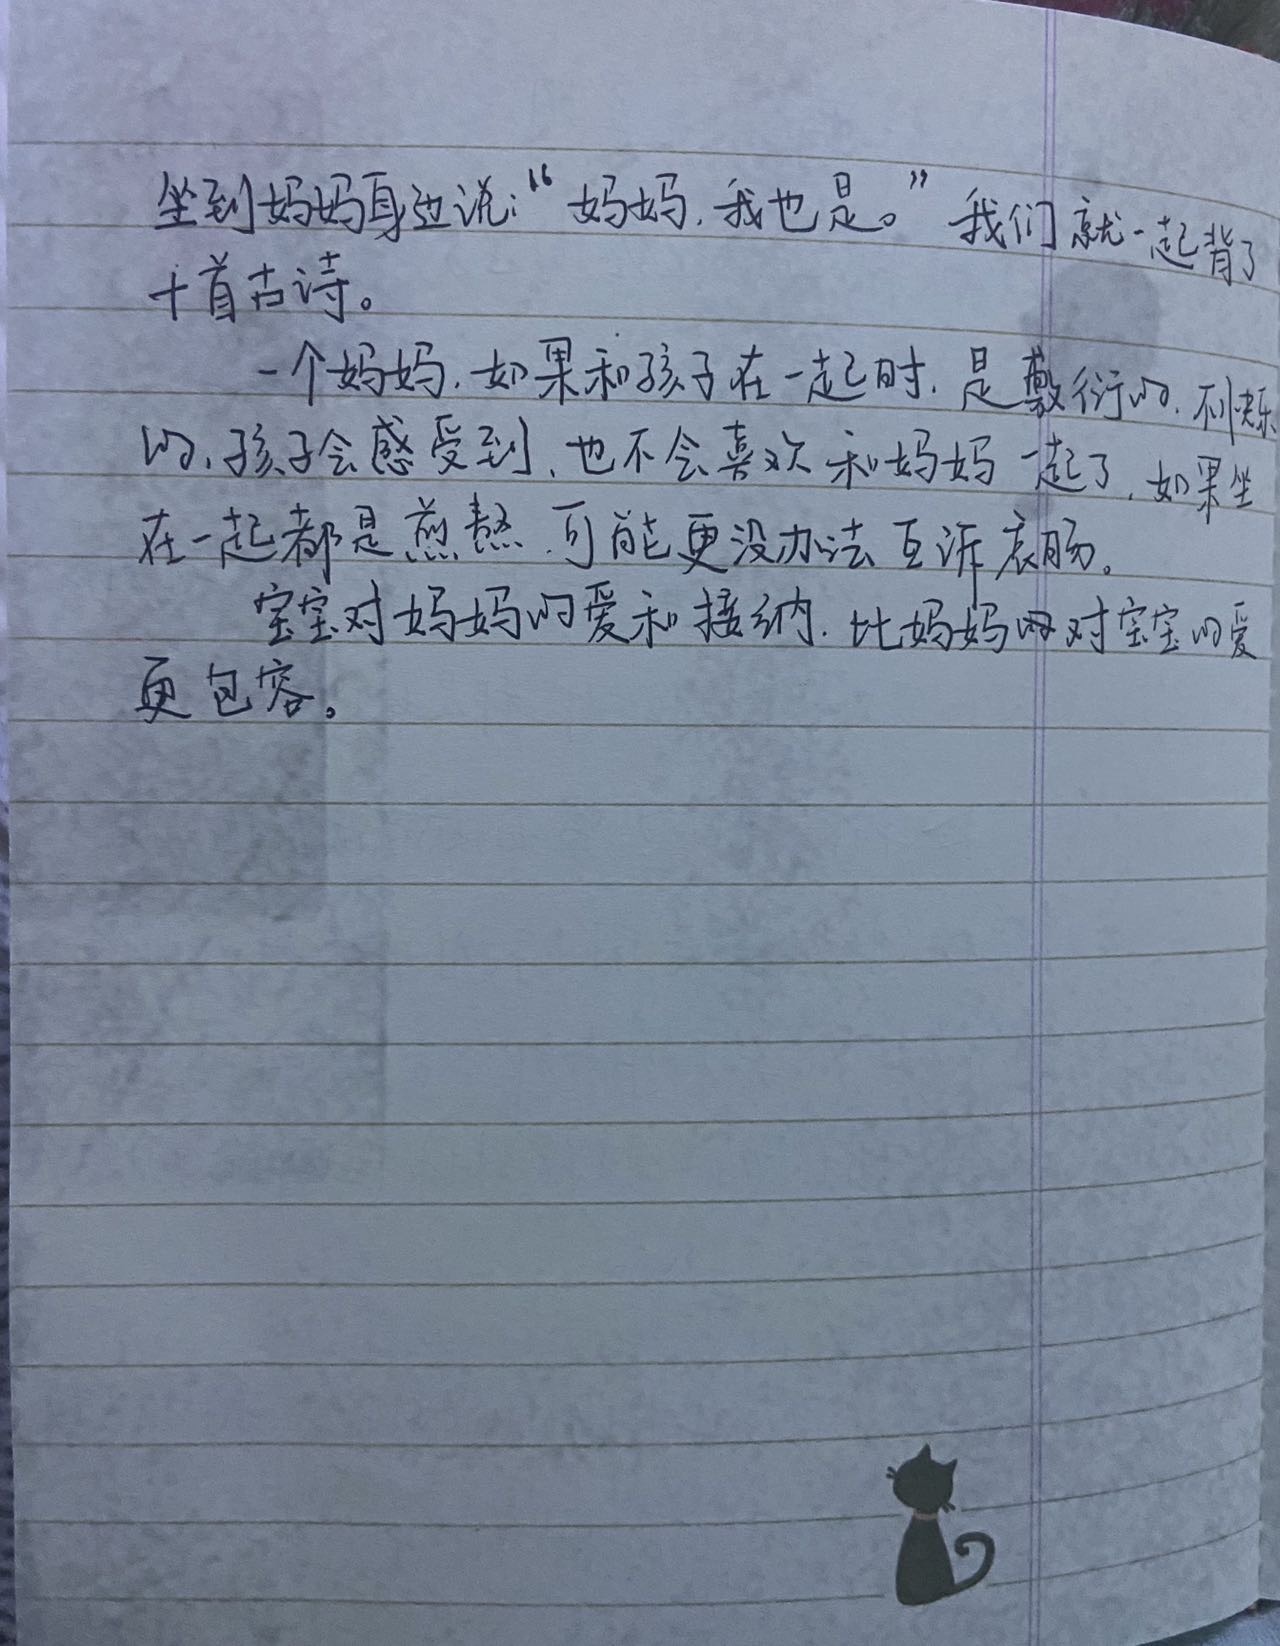 坐到妈妈身边说：“妈妈，我也是。”我们就一起背了
十首古诗。
一个妈妈，如果和孩子在一起时，是敷衍的，不快乐
的，孩子会感受到，也不会喜欢和妈妈一起了，如果坐
在一起都是煎熬，可能更没办法互诉衷肠。
宝宝对妈妈的爱和接纳，比妈妈对宝宝的爱
更包容。